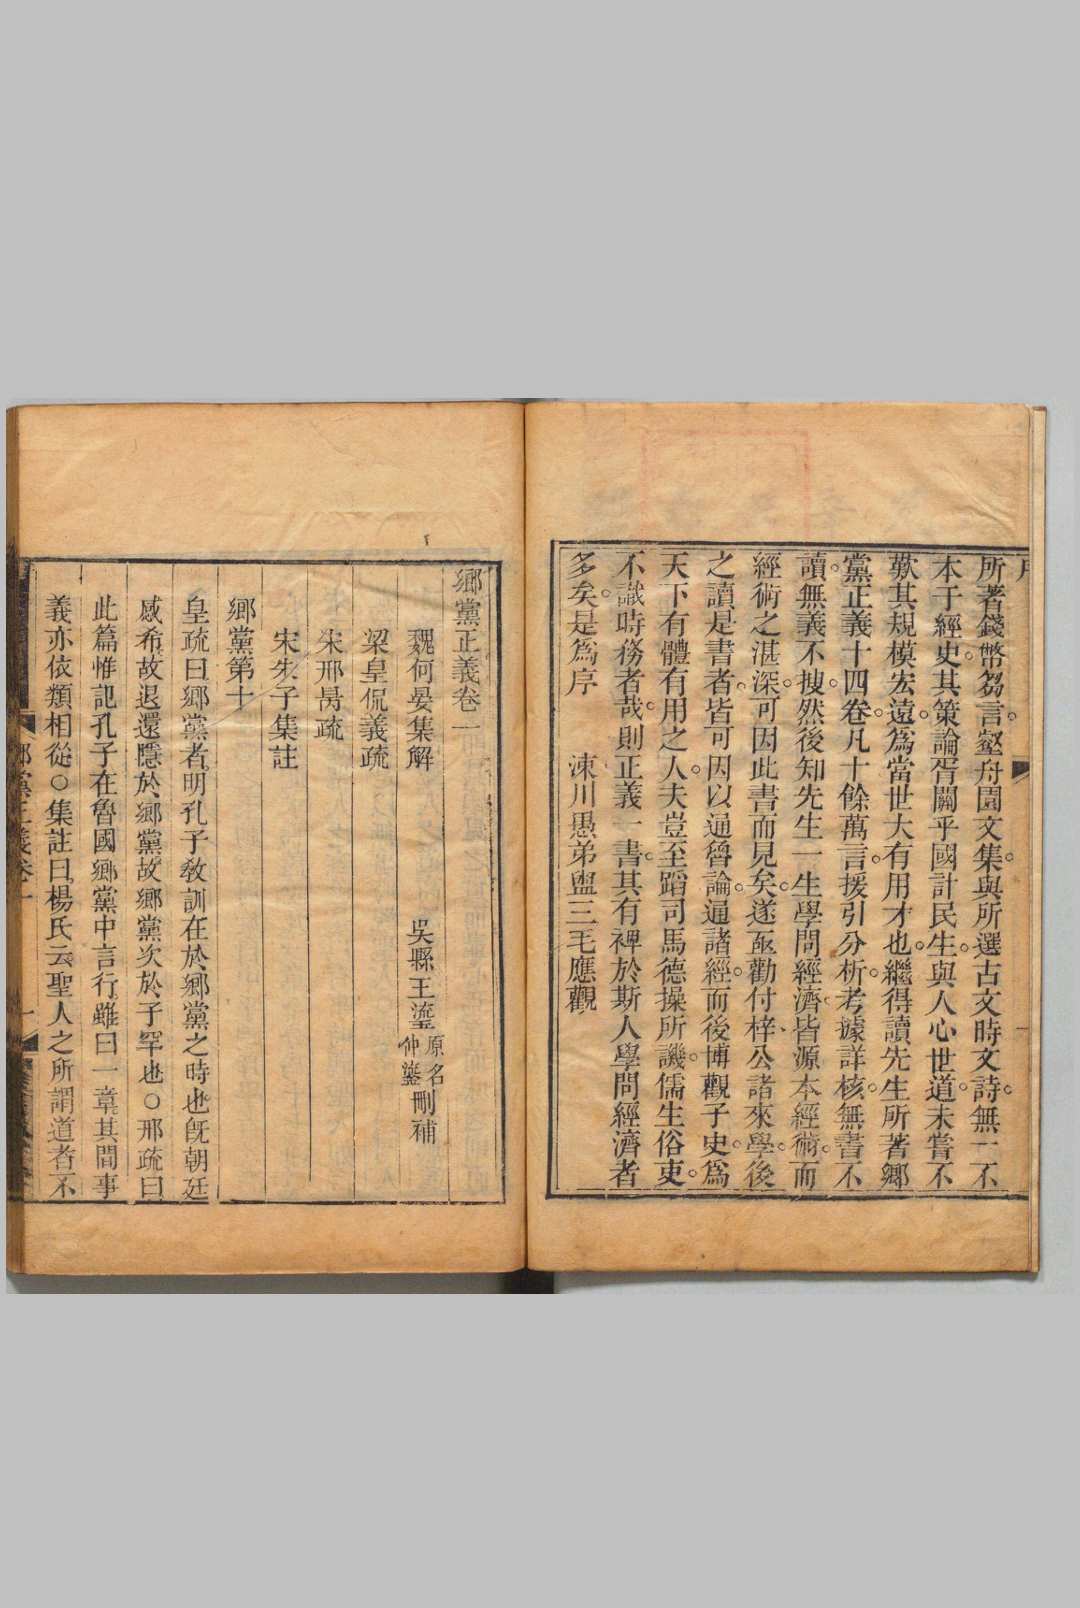 所著錢幣芻言。壑舟園文集。與所選古文時文詩。無一不
本于經史。其策論胥關乎國計民生。與人心世道。未嘗不
歎其規模宏遠。為當世大有用才也。繼得讀先生所著鄉
黨正義十四卷。凡十餘萬言。援引分析。考據詳核。無書不
讀。無義不搜。然後知先生一生學問經濟。皆源本經術。而
經術之湛深。可因此書而見矣。遂亟勸付梓。公諸來學。後
之讀是書者。皆可因以通魯論。通諸經。而後博觀子史。為
天下有體有用之人。夫豈至蹈司馬德操所譏儒生俗吏。
不識時務者哉。則正義一書。其有裨於斯人學問經濟者
多矣。是為序 涑川愚弟盥三毛應觀
鄉黨正義卷一
魏何晏集解 吳縣王瀅原名仲鎏刪補
梁皇侃義疏
宋邢昺疏
宋朱子集註
鄉黨第十
皇疏曰鄉黨者明孔子教訓在於鄉黨之時也旣朝廷
感希故退還隱於鄉黨故鄉黨次於子罕也○邢疏曰
此篇惟記孔子在魯國鄉黨中言行雖曰一章其間事
義亦依類相從○集註曰楊氏云聖人之所謂道者不
鄉黨正義卷一